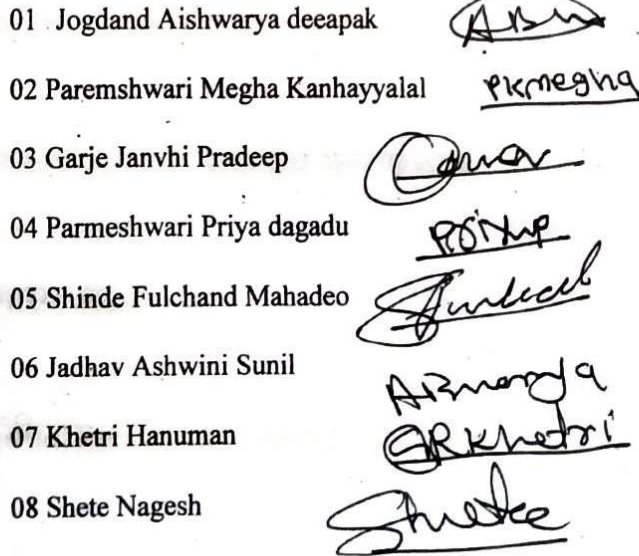 01 Jogdand Aishwarya deeapak
02 Paremshwari Megha Kanhayyalal PKmegha
03 Garje Janvhi Pradeep
04 Parmeshwari Priya dagadu
05 Shinde Fulchand Mahadeo
06 Jadhav Ashwini Sunil
07 Khetri Hanuman GRKhetri
08 Shete Nagesh Shete